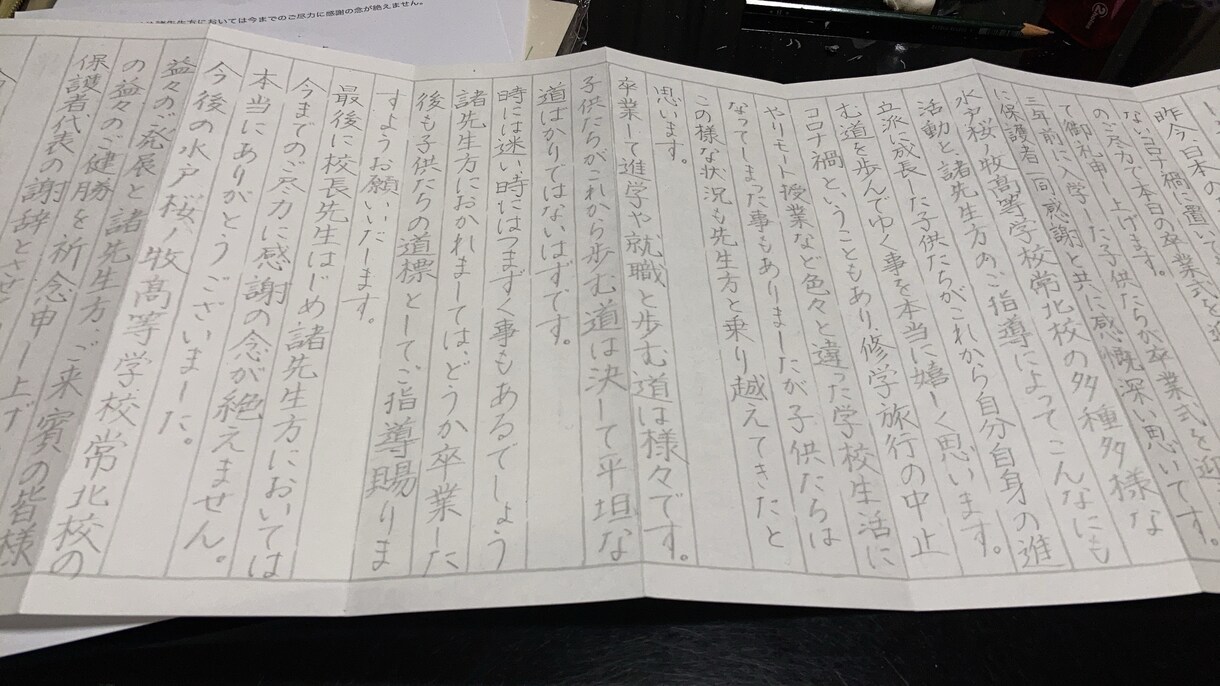 諸先生方においては今までのご尽力に感謝の念が絶えません。
昨今日本の
ないコロナ禍に置いて
のご尽力で本日の卒業式を迎
て御礼申し上げます。
三年前に入学した子供たちが卒業式を迎
に保護者一同感謝と共に感慨深い思いです。
水戸桜ノ牧高等学校常北校の多種多様な
活動と、諸先生方のご指導によってこんなにも
立派に成長した子供たちがこれから自分自身の進
む道を歩んでゆく事を本当に嬉しく思います。
コロナ禍ということもあり、修学旅行の中止
やリモート授業など色々と違った学校生活に
なってしまった事もありましたが子供たちは
この様な状況も先生方と乗り越えてきたと
思います。
卒業して進学や就職と歩む道は様々です。
子供たちがこれから歩む道は決して平坦な
道ばかりではないはずです。
時には迷い、時にはつまずく事もあるでしょう
諸先生方におかれましては、どうか卒業した
後も子供たちの道標として、ご指導賜りま
すようお願いいたします。
最後に校長先生はじめ諸先生方においては
今までのご尽力に感謝の念が絶えません。
本当にありがとうございました。
今後の水戸桜ノ牧高等学校常北校の
益々のご発展と諸先生方、ご来賓の皆様
の益々のご健勝を祈念申し上げ
保護者代表の謝辞とさせ